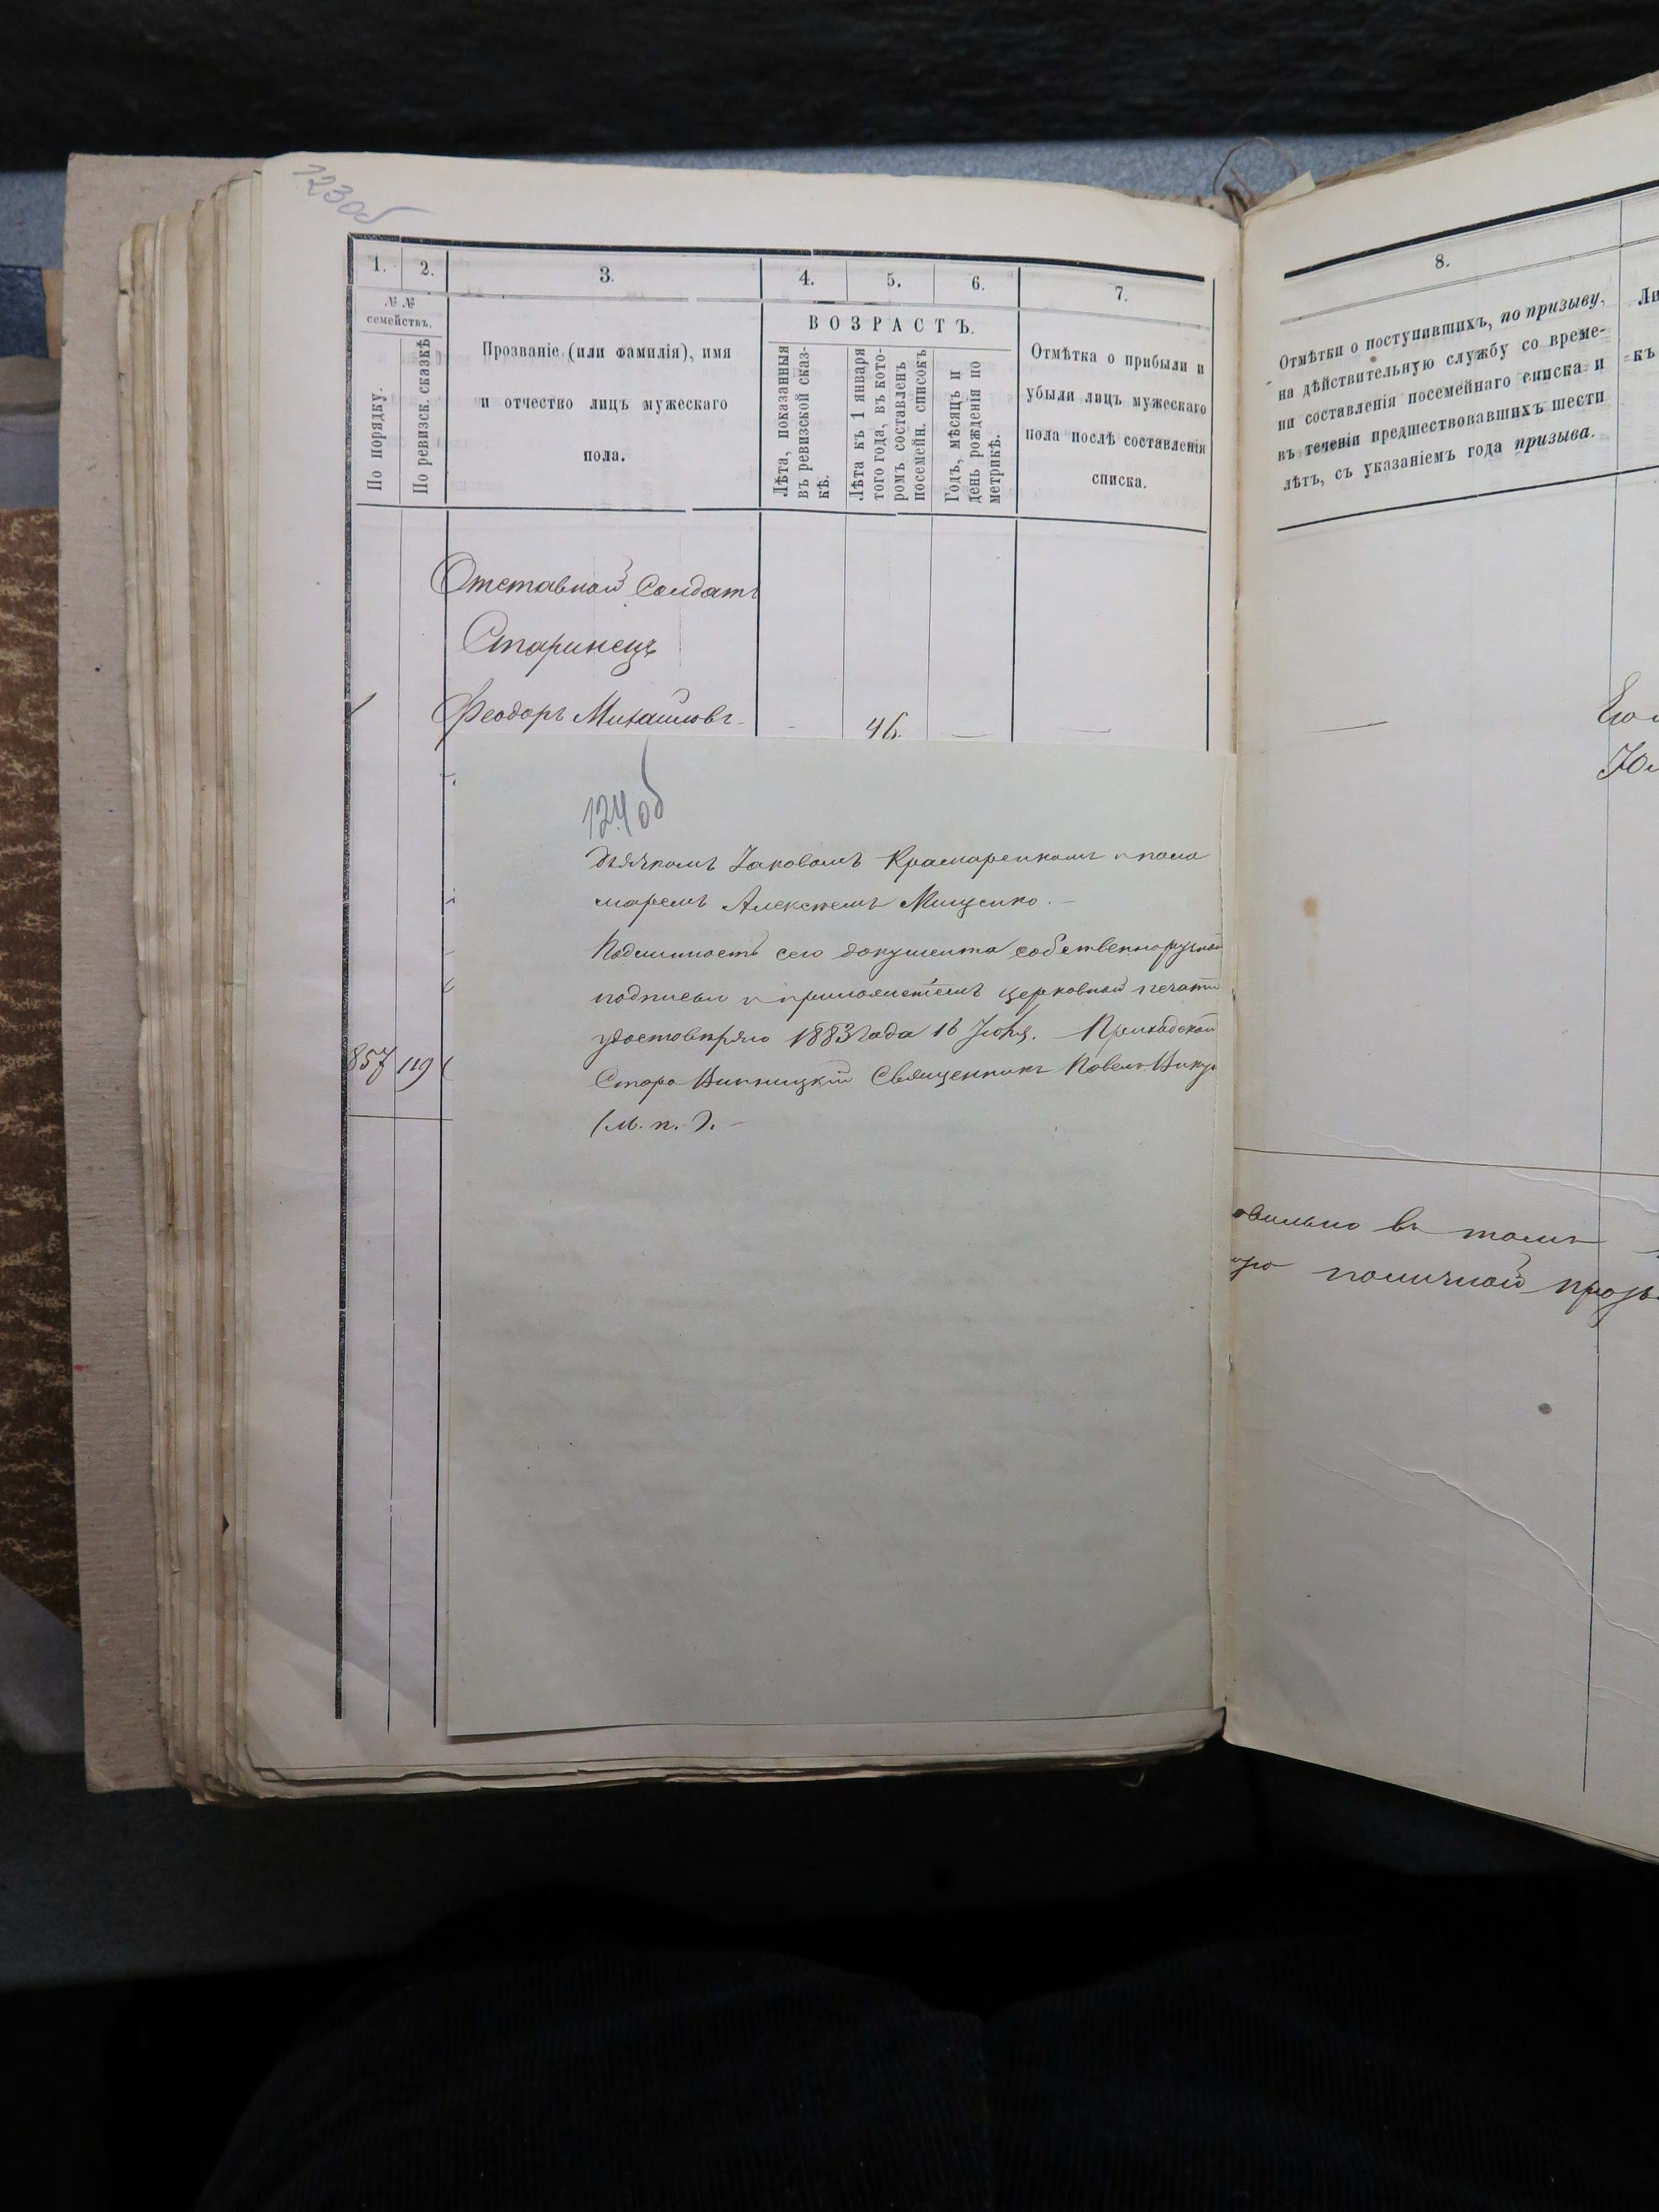 123об
1. 2. 3. 4. 5. 6. 7.
№ №
семействъ.
По порядку.
По ревизск. сказкѣ
Прозваніе (или фамилія), имя
и отчество лицъ мужескаго
пола.
ВОЗРАСТЪ.
Лѣта, показанныя
въ ревизской сказ-
кѣ.
Лѣта къ 1 января
того года, въ кото-
ромъ составленъ
посемейн. списокъ
Годъ, мѣсяцъ и
день рожденія по
метрикѣ.
Отмѣтка о прибыли и
убыли лицъ мужескаго
пола послѣ составленія
списка.
Отставной Солдатъ
Старинецъ
Феодоръ Михайловъ - 46. — —
124об
дьячкомъ Іаковомъ Крамаренкомъ и поно
маремъ Алексѣемъ Мищенко. —
Подлинность сего документа собственноручной
подписью и приложеніемъ церковной печати
удостовѣряю 1883 года 16 Приходской
Старо Винницкій Священникъ Павелъ
(м. п.). —
857 119
8.
Отмѣтки о поступившихъ, по призыву,
на дѣйствительную службу со време-
ни составленія посемейнаго списка и
въ теченіи предшествовавшихъ шести
лѣтъ, съ указаніемъ года призыва.
Ли
къ
—
Его
Юл
овильно въ томъ
поличной